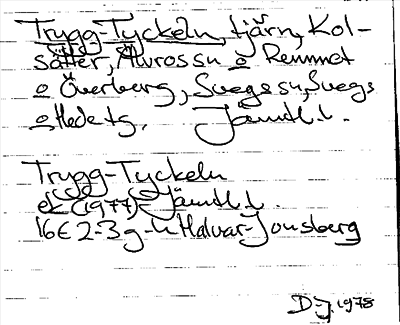 Trygg-Tyckeln, tjärn, Kol-
sätter, Älvros sn o Remmet
o Överberg, Svegs sn, Svegs
o Hede tg, Jämtl. l.
Trygg-Tyckeln
ek (1977) Jämtl. l.
16E 2-3 g-h Halvar Jonsberg
D-J. 1978